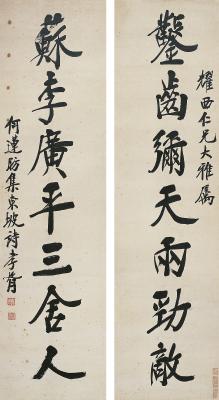 耀西仁兄大雅屬
鑿齒彌天兩勁敵
蘇李廣平三舍人
何蓮舫集東坡詩孝胥